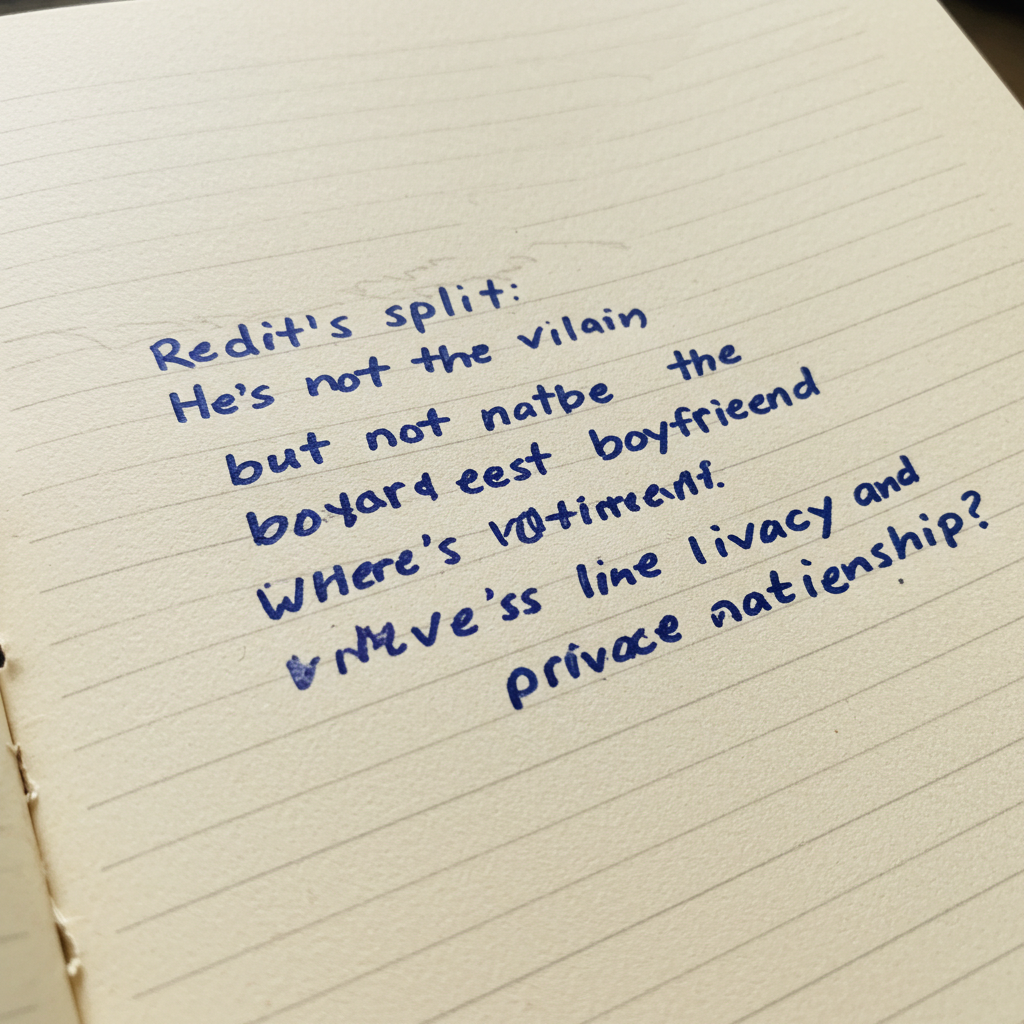 Redit's split:
He's not the vilain
but not natbe the
boyard eest boyfrieend
Where's
line livacy and
privace natienship?